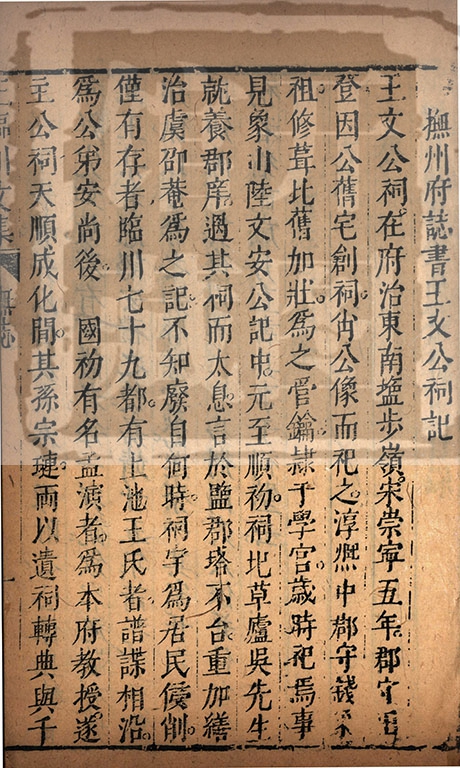 撫州府誌書王文公祠記
王文公祠在府治東南塩步嶺宋崇寧五年郡守田
登因公舊宅創祠肖公像而祀之淳熈中郡守錢象
祖修葺比舊加壯爲之管鑰隷于學官歳時祀焉事
見象山陸文安公記中元至順初祠圮草廬吳先生
就養郡庠過其祠而太息言於監郡塔不台重加繕
治虞邵菴爲之記不知廢自何時祠宇爲居民侵削
僅有存者臨川七十九都有上池王氏者譜諜相沿
爲公弟安尚後 國初有名孟演者爲本府教授遂
主公祠天順成化間其孫宗璉兩以遺祠轉典與千
王臨川文集 無誌